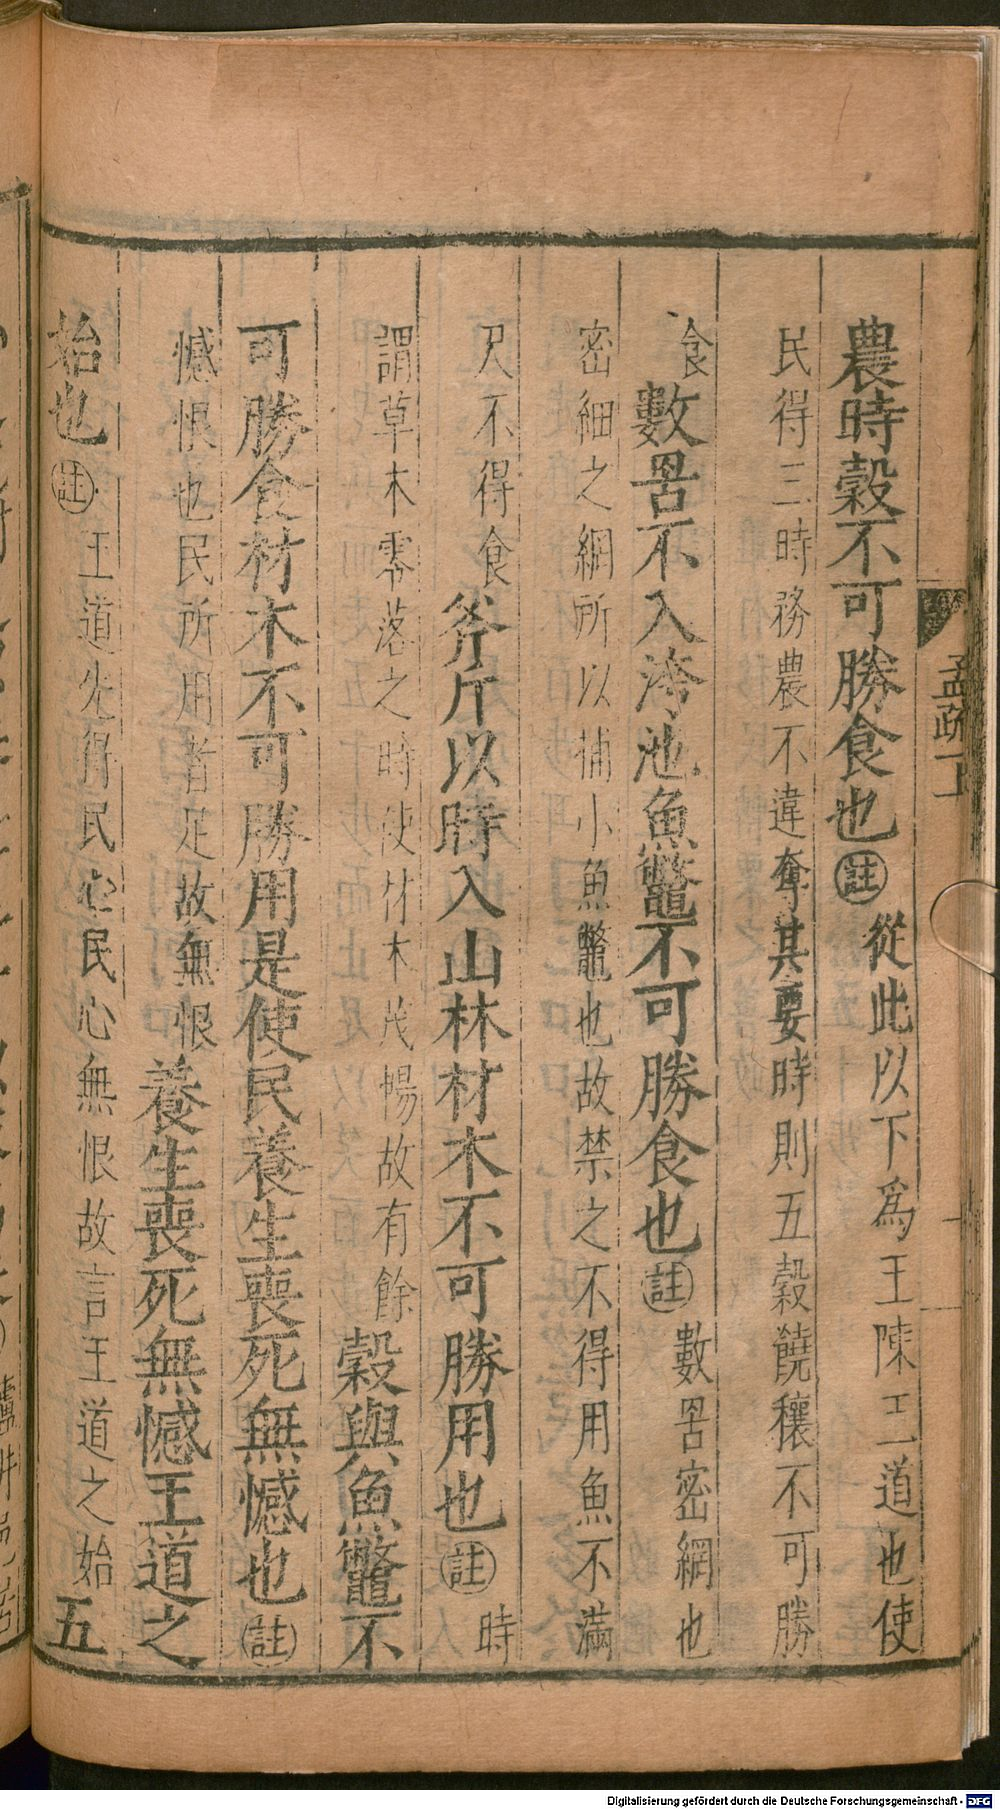 農時穀不可勝食也註從此以下爲王陳王道也使
民得三時務農不違奪其要時則五穀饒穰不可勝
食數罟不入洿池魚鼈不可勝食也註數罟密網也
密細之網所以捕小魚鼈也故禁之不得用魚不滿
尺不得食斧斤以時入山林材木不可勝用也註時
謂草木零落之時使材木茂暢故有餘穀與魚鼈不
可勝食材木不可勝用是使民養生喪死無憾也註
憾恨也民所用者足故無恨養生喪死無憾王道之
始也註王道先得民心民心無恨故言王道之始五
孟疏一上
Digitalisierung gefördert durch die Deutsche Forschungsgemeinschaft - DFG